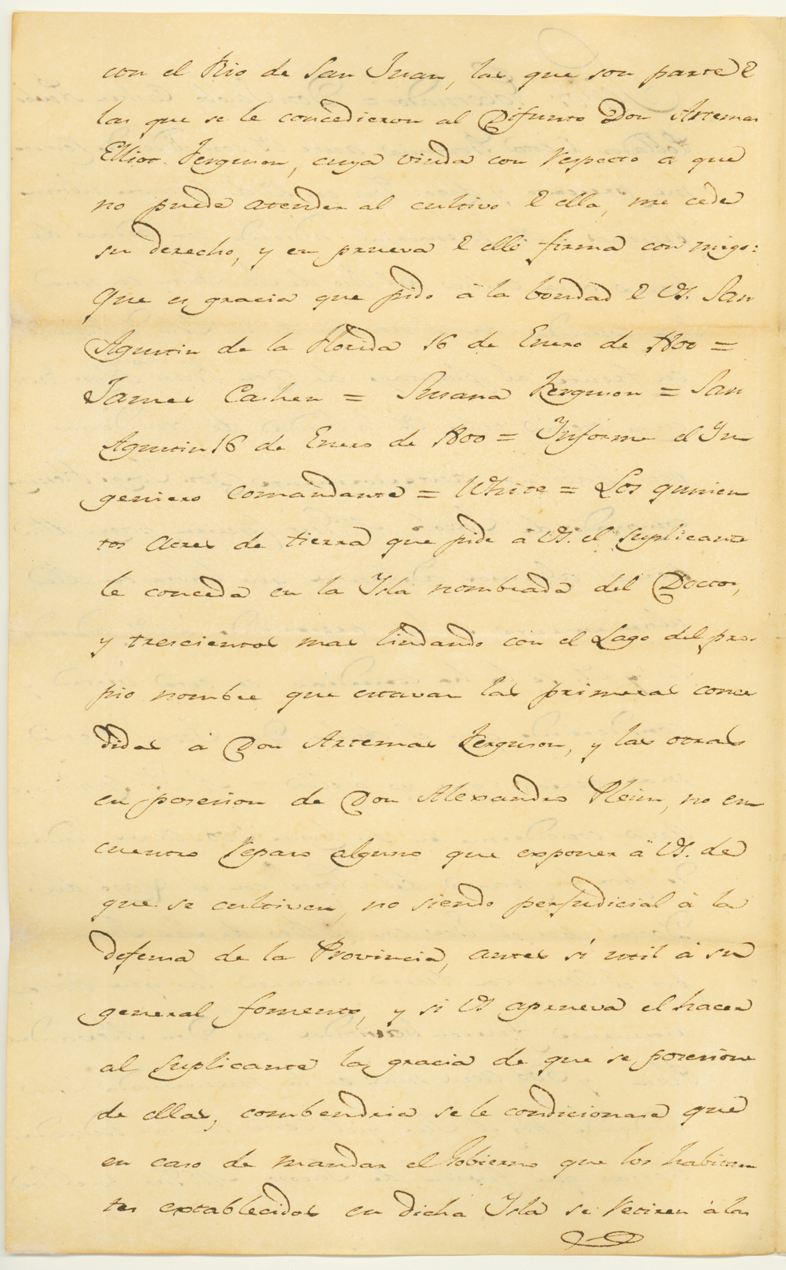 con el Rio de San Juan, las que son parte 2
las que se le concedieron al Difunto Don Artemas
Elliot Ferguson, cuya viuda con respecto a que
no puede atender al cultivo 2 ella, me cede
su derecho, y en prueva 2 ello firma con migo:
Que es gracia que pido à la bondad 2 VS. San
Agustin de la Florida 16 de Enero de 1800 =
James Cashen = Susana Ferguson = San
Agustin 16 de Enero de 1800 = Informe el In
geniero Comandante = White = Los quinien
tos Acres de tierra que pide à VS. el Suplicante
le conceda en la Isla nombrada del Doctor,
y trescientos mas lindando con el Lago del pro-
pio nombre que estavan las primeras conce
didas à Don Artemas Ferguson, y las otras
en posesion de Don Alexandro Plein, no en
cuentro reparo alguno que exponer à VS. de
que se cultiven, no siendo perjudicial à la
defensa de la Provincia, antes si util à su
general fomento, y si VS aprueva el hacer
al Suplicante la gracia de que se posesione
de ellas, combendria se le condicionara que
en caso de mandar el Gobierno que los habitan
tes establecidos en dicha Isla se retiren à las